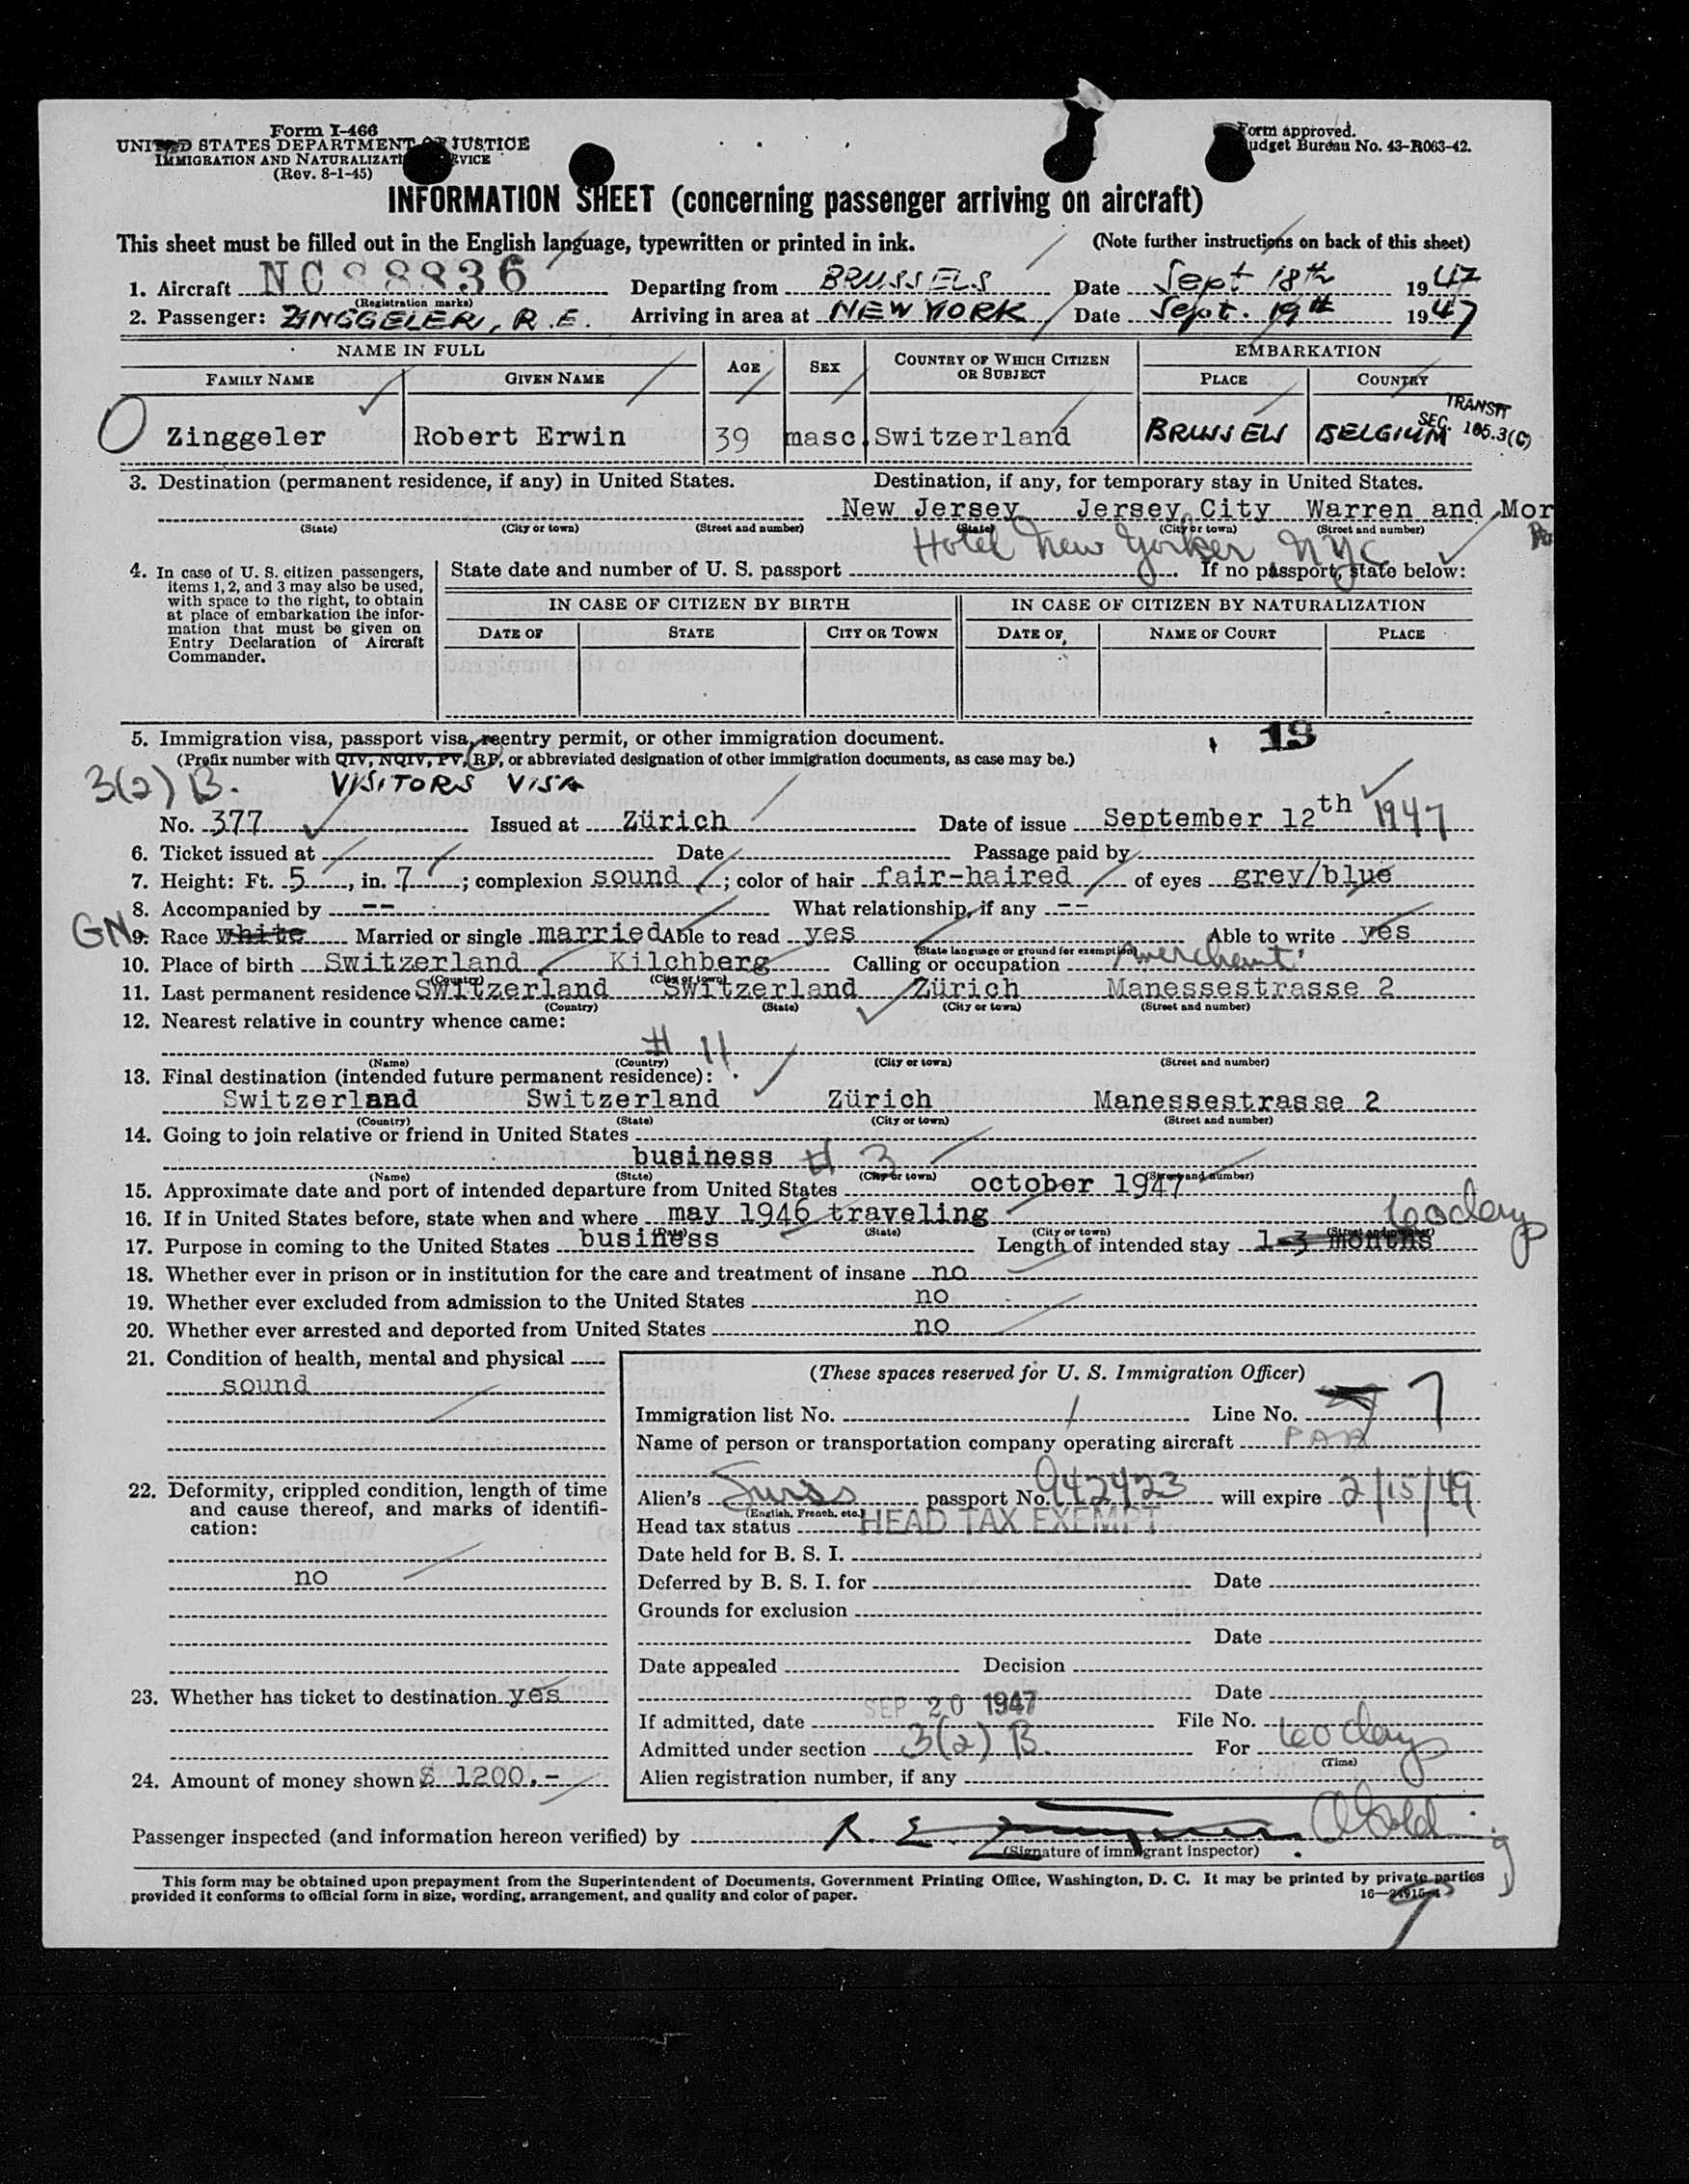 Form I-466
UNITED STATES DEPARTMENT OF JUSTICE
IMMIGRATION AND NATURALIZATION SERVICE
(Rev. 8-1-45)
Form approved.
Budget Bureau No. 43-R063-42.
INFORMATION SHEET (concerning passenger arriving on aircraft)
This sheet must be filled out in the English language, typewritten or printed in ink. (Note further instructions on back of this sheet)
1. Aircraft NC88836 Departing from BRUSSELS Date Sept 18th 1947
(Registration marks)
2. Passenger: ZINGGELER, R.E. Arriving in area at NEW YORK Date Sept. 19th 1947
NAME IN FULL AGE SEX COUNTRY OF WHICH CITIZEN OR SUBJECT EMBARKATION
FAMILY NAME GIVEN NAME PLACE COUNTRY
TRANSIT
SEC. 165.3(C)
Zinggeler Robert Erwin 39 masc. Switzerland BRUSSELS BELGIUM
3. Destination (permanent residence, if any) in United States. Destination, if any, for temporary stay in United States.
New Jersey Jersey City Warren and Mor
(State) (City or town) (Street and number) (State) (City or town) (Street and number)
Hotel New Yorker NYC
4. In case of U. S. citizen passengers, items 1, 2, and 3 may also be used, with space to the right, to obtain at place of embarkation the information that must be given on Entry Declaration of Aircraft Commander.
State date and number of U. S. passport . If no passport, state below:
IN CASE OF CITIZEN BY BIRTH IN CASE OF CITIZEN BY NATURALIZATION
DATE OF STATE CITY OR TOWN DATE OF NAME OF COURT PLACE
5. Immigration visa, passport visa, reentry permit, or other immigration document. 19
(Prefix number with QIV, NQIV, PV, RP, or abbreviated designation of other immigration documents, as case may be.)
3(2) B. VISITORS VISA
No. 377 Issued at Zürich Date of issue September 12th 1947
6. Ticket issued at Date Passage paid by
7. Height: Ft. 5, in. 7; complexion sound; color of hair fair-haired of eyes grey/blue
8. Accompanied by -- What relationship, if any --
GN 9. Race White Married or single married Able to read yes Able to write yes
(State language or ground for exemption)
10. Place of birth Switzerland Kilchberg Calling or occupation merchant
(Country) (City or town)
11. Last permanent residence Switzerland Switzerland Zürich Manessestrasse 2
(Country) (State) (City or town) (Street and number)
12. Nearest relative in country whence came:
# 11
(Name) (Country) (City or town) (Street and number)
13. Final destination (intended future permanent residence):
Switzerland Switzerland Zürich Manessestrasse 2
(Country) (State) (City or town) (Street and number)
14. Going to join relative or friend in United States
business # 3
(Name) (State) (City or town) (Street and number)
15. Approximate date and port of intended departure from United States october 1947
16. If in United States before, state when and where may 1946 traveling
(Date) (State) (City or town) (Street and number)
60 days
17. Purpose in coming to the United States business Length of intended stay 1-3 months
18. Whether ever in prison or in institution for the care and treatment of insane no
19. Whether ever excluded from admission to the United States no
20. Whether ever arrested and deported from United States no
21. Condition of health, mental and physical
sound
22. Deformity, crippled condition, length of time and cause thereof, and marks of identification:
no
23. Whether has ticket to destination yes
24. Amount of money shown $ 1200.-
(These spaces reserved for U. S. Immigration Officer)
Immigration list No. Line No. 7
Name of person or transportation company operating aircraft PAA
Alien's Swiss passport No. 942423 will expire 2/15/49
(English, French, etc.)
Head tax status HEAD TAX EXEMPT
Date held for B. S. I.
Deferred by B. S. I. for Date
Grounds for exclusion
Date
Date appealed Decision
Date
If admitted, date SEP 20 1947 File No.
Admitted under section 3(2) B. For 60 days
(Time)
Alien registration number, if any
Passenger inspected (and information hereon verified) by R. E.
(Signature of immigrant inspector)
This form may be obtained upon prepayment from the Superintendent of Documents, Government Printing Office, Washington, D. C. It may be printed by private parties
provided it conforms to official form in size, wording, arrangement, and quality and color of paper. 16—24915-1